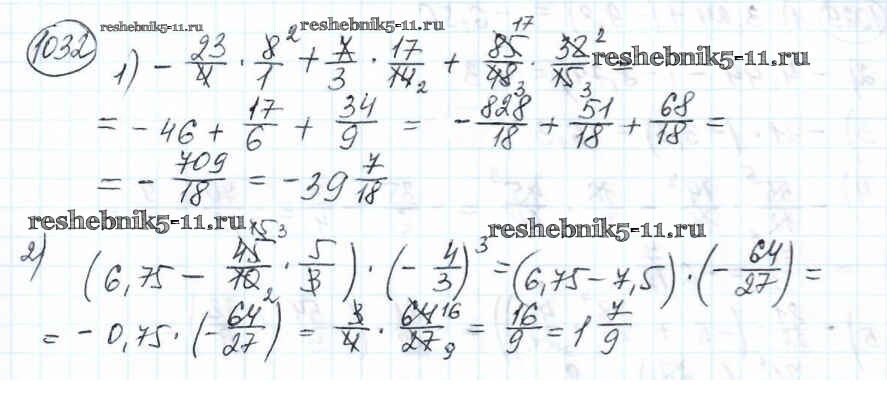 1032 reshebnik5-11.ru reshebnik5-11.ru
1) - 23/4 · 8/1 2 + 7/3 · 17/14 2 + 85/48 17 3 · 32/15 2 3 = reshebnik5-11.ru
= - 46 + 17/6 + 34/9 = - 828/18 + 51/18 + 68/18 =
= - 709/18 = - 39 7/18
reshebnik5-11.ru reshebnik5-11.ru
2) (6,75 - 45/10 15 3 2 · 5/3) · (- 4/3)³ = (6,75 - 7,5) · (- 64/27) =
= - 0,75 · (- 64/27) = 3/4 · 64/27 16 9 = 16/9 = 1 7/9